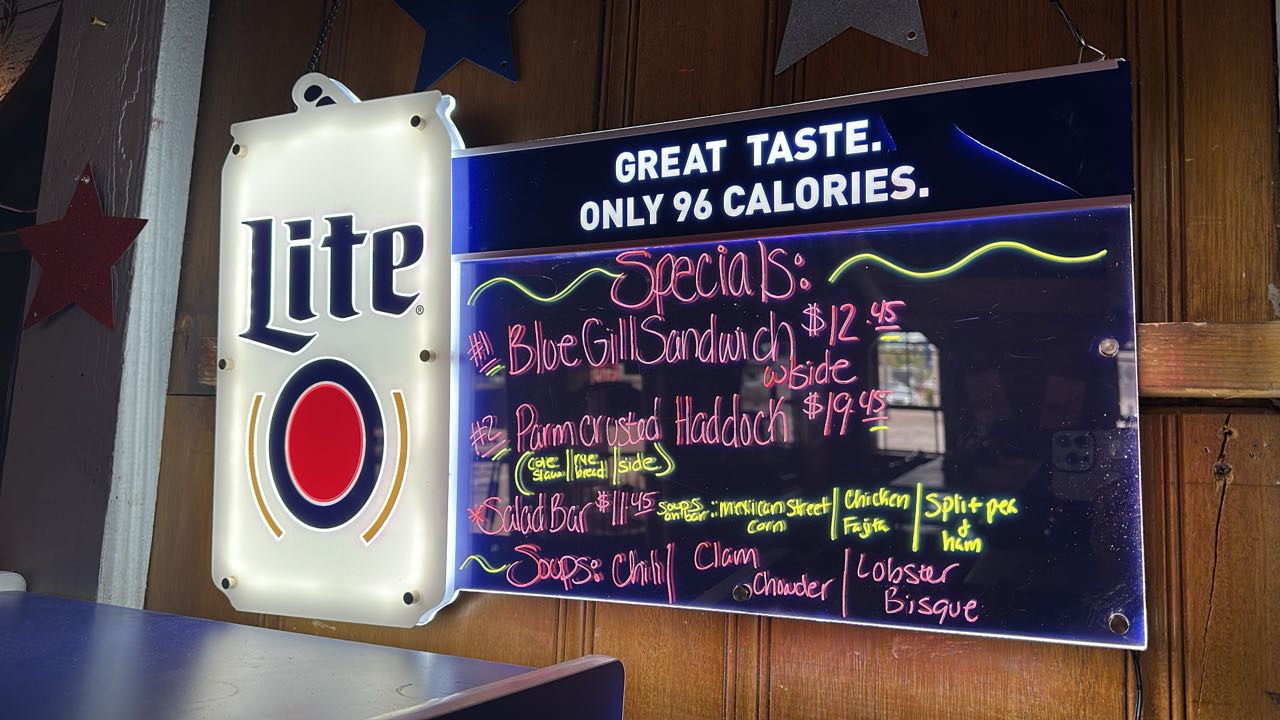 Lite®
GREAT TASTE.
ONLY 96 CALORIES.
Specials:
#1 Blue Gill Sandwich $12.45
w/side
#2 Parm crusted Haddock $19.45
(cole slaw | rye bread | side)
*Salad Bar $11.45 soups on bar: mexican street corn | Chicken Fajita | Split pea & ham
Soups: Chili | Clam Chowder | Lobster Bisque